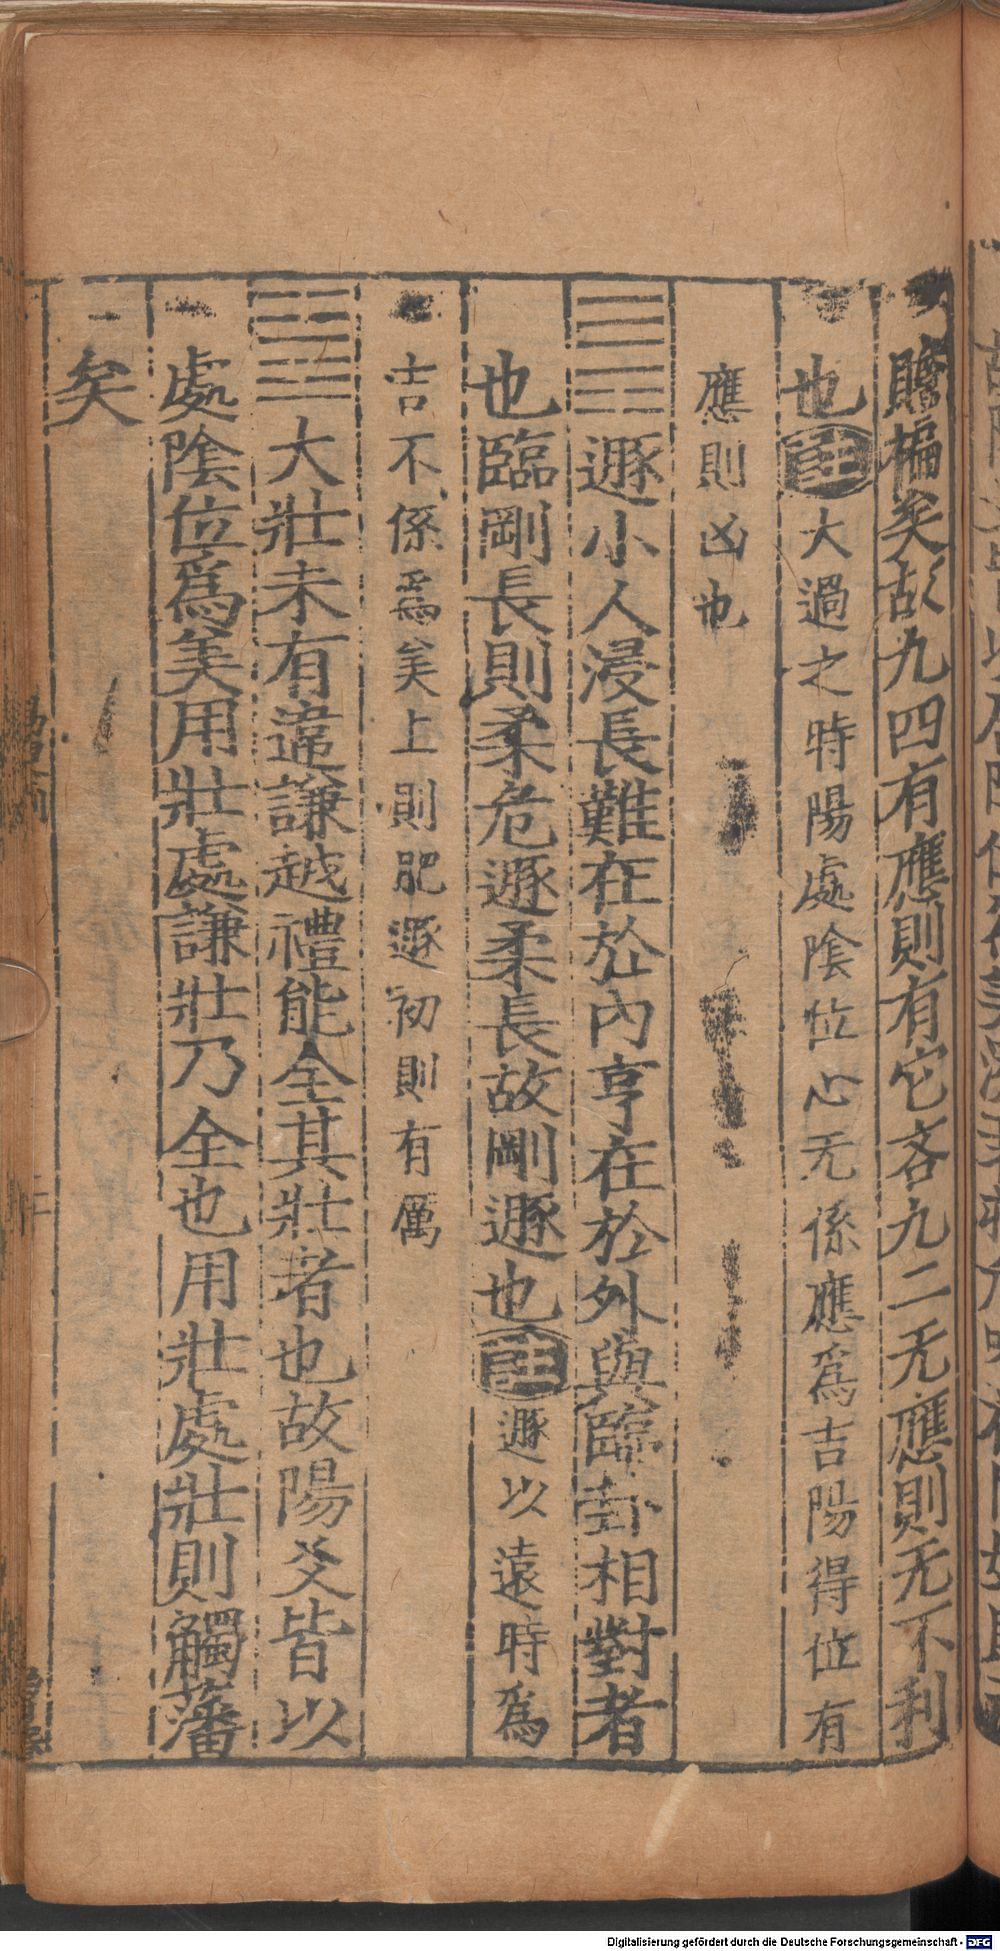 贍褊矣故九四有應則有它吝九二无應則无不利
也註大過之時陽處陰位心无係應爲吉陽得位有
應則凶也
遯小人浸長難在於內亨在於外與臨卦相對者
也臨剛長則柔危遯柔長故剛遯也註遯以遠時爲
吉不係爲美上則肥遯初則有厲
大壯未有違謙越禮能全其壯者也故陽爻皆以
處陰位爲美用壯處謙壯乃全也用壯處壯則觸藩
矣
Digitalisierung gefördert durch die Deutsche Forschungsgemeinschaft - DFG